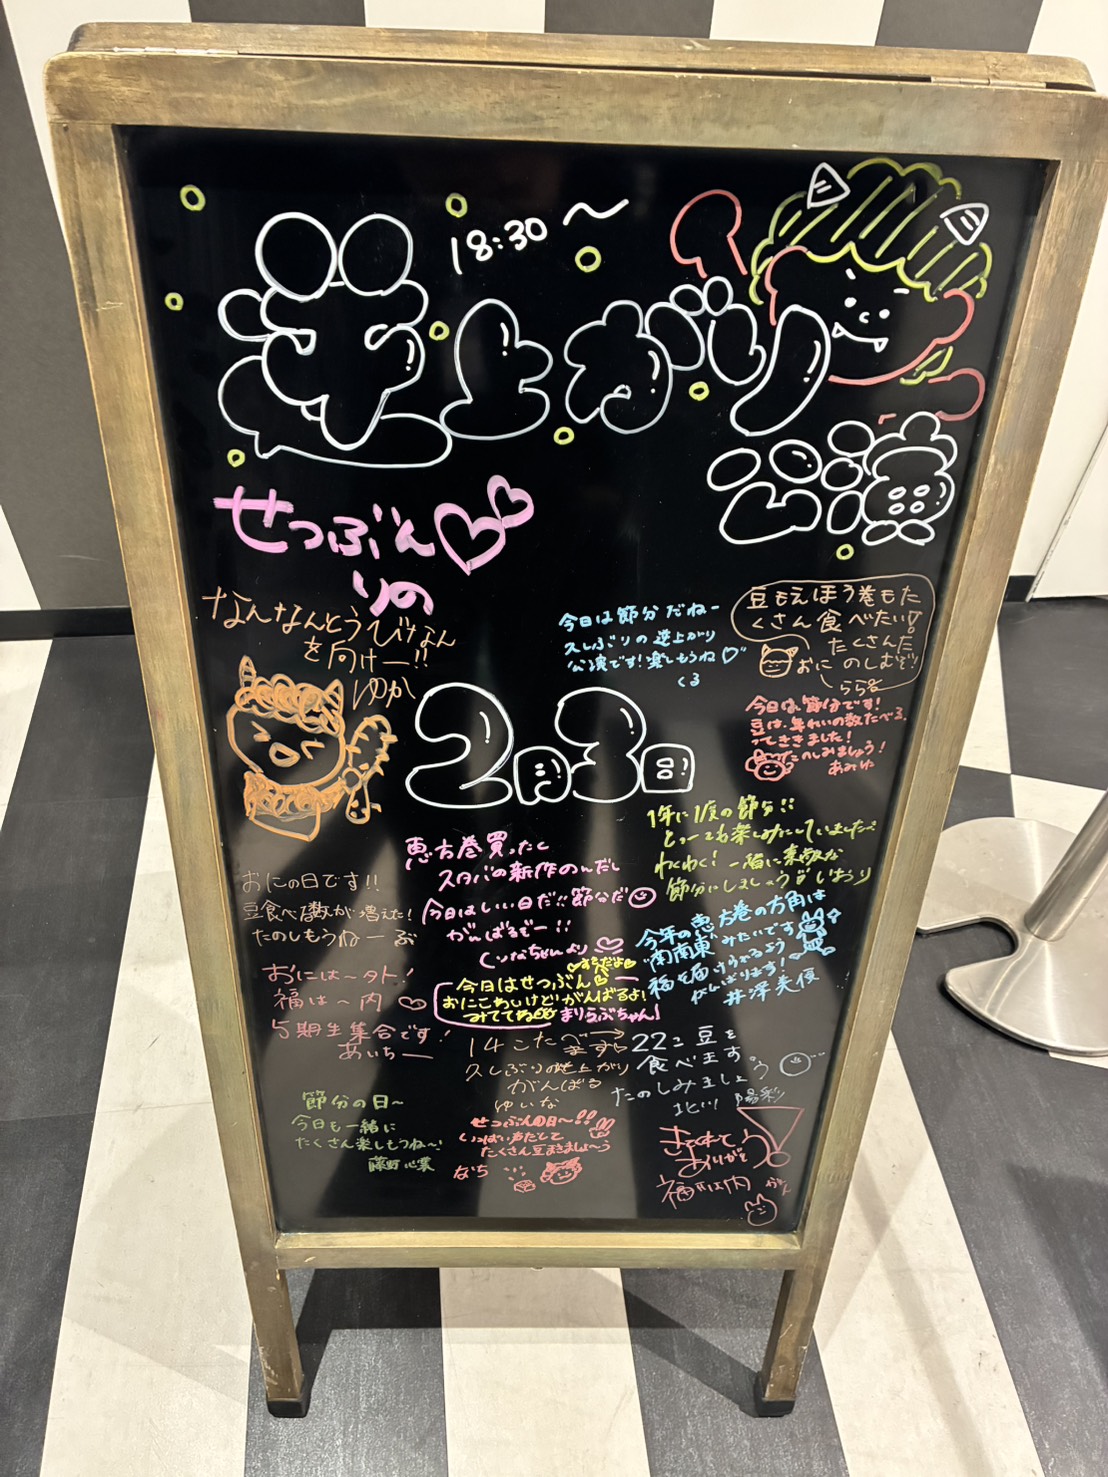 18:30〜
逆上がり
公演
せつぶん
りの
なんなんとうびなん
を向けー!!
ゆか
今日は節分だねー
久しぶりの逆上がり
公演です!楽しもうね♡
くる
豆もえほう巻もた
くさん食べたい!
たくさんた
おに のしむぞ!!
らら
今日は、節分です!
豆は、年れいの数たべる
ってききました!
たのしみましょう!
あみけ
2月3日
1年に1度の節分!!
とっーても楽しみにしていました
わくわく! 一緒に素敵な
節分にしましょうす しおり
恵方巻買ったし
スタバの新作のんだし
今日はいい日だ!!節分だ
がんばるぞー!!
くいなちゃんより
おにの日です!!
豆食べる数が増えた!
たのしもうねーぶ
今年の恵方巻の方角は
南南東みたいです
福を届けられるよう
がんばります!
井澤美優
おには〜外!
福は〜内♡
5期生集合です!
あいちー
すうだよ
今日はせつぶん
おにこわいけどがんばるよ!
みててね まりらぶちゃん
14こたべます
久しぶりの逆上がり
がんばる
ゆいな
22こ豆を
食べます
たのしみましょう
北川 陽彩
節分の日〜
今日も一緒に
たくさん楽しもうね〜!
藤野心葉
せつぶんの日〜!!
いっぱい声だして
たくさん豆まきましょ〜う
なち
きてくれて
ありがとう
福は内